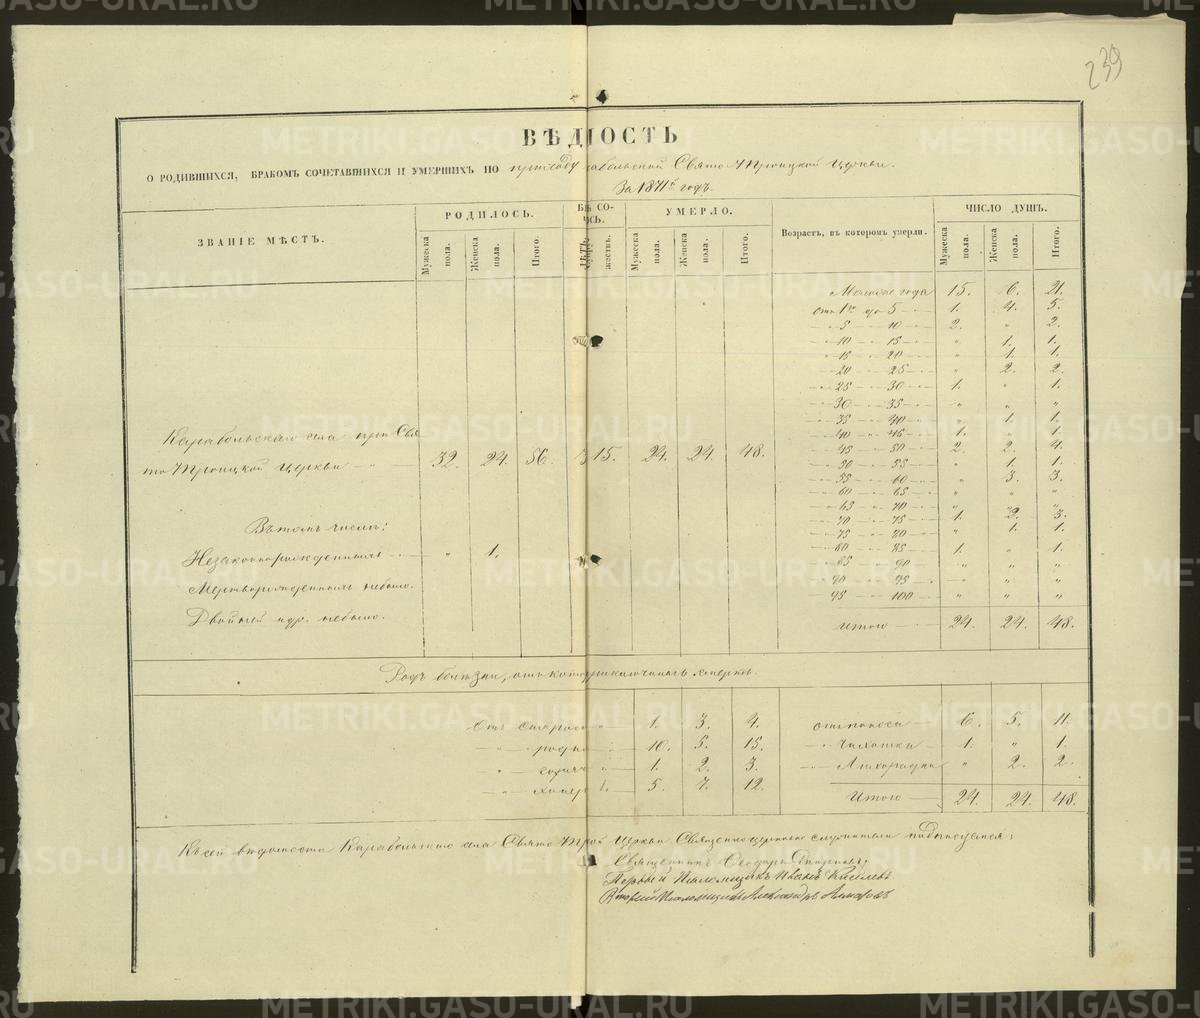 239
ВѢДОМОСТЬ
О РОДИВШИХСЯ, БРАКОМЪ СОЧЕТАВШИХСЯ И УМЕРШИХЪ ПО приходу Карабольской Свято Троицкой Церкви.
За 1871й годъ.
ЗВАНІЕ МѢСТЪ.
РОДИЛОСЬ.
УМЕРЛО.
Возрастъ, въ которомъ умерли.
ЧИСЛО ДУШЪ.
Мужеска пола. Женска пола. Итого.
Мужеска пола. Женска пола. Итого.
Мужеска пола. Женска пола. Итого.
Молодые года 15. 6. 21.
отъ 1го до 5 1. 4. 5.
" 5 " 10 2. " 2.
" 10 " 15 " 1. 1.
" 15 " 20 " 1. 1.
" 20 " 25 " 2. 2.
" 25 " 30 1. " 1.
" 30 " 35 " " "
" 35 " 40 " 1. 1.
" 40 " 45 1. " 1.
" 45 " 50 2. 2. 4.
" 50 " 55 " 1. 1.
" 55 " 60 " 3. 3.
" 60 " 65 " " "
" 65 " 70 " " "
" 70 " 75 1. 2. 3.
" 75 " 80 " 1. 1.
" 80 " 85 1. " 1.
" 85 " 90 " " "
" 90 " 95 " " "
" 95 " 100 " " "
Итого 24. 24. 48.
Карабольскаго села при Свя
то Троицкой Церкви 32. 24. 56. 15. 24. 24. 48.
Въ томъ числѣ:
Незаконнорожденныхъ " 1.
Мертворожденныхъ небыло.
Двойней и др. небыло.
Родъ болѣзни, отъ которой приключилась смерть.
Отъ старости 1. 3. 4.
" родим 10. 5. 15.
" горяч 1. 2. 3.
" холер 5. 7. 12.
отъ поноса 6. 5. 11.
" Чахотки 1. " 1.
" Лихорадки " 2. 2.
Итого 24. 24. 48.
Къ сей вѣдомости Карабольскаго села Свято Трой Церкви Священноцерковно служители подписуемся:
Священникъ Феодоръ
Первый Псаломщикъ Иванъ Киселевъ
Второй Псаломщикъ Александръ
METRIKI.GASO-URAL.RU